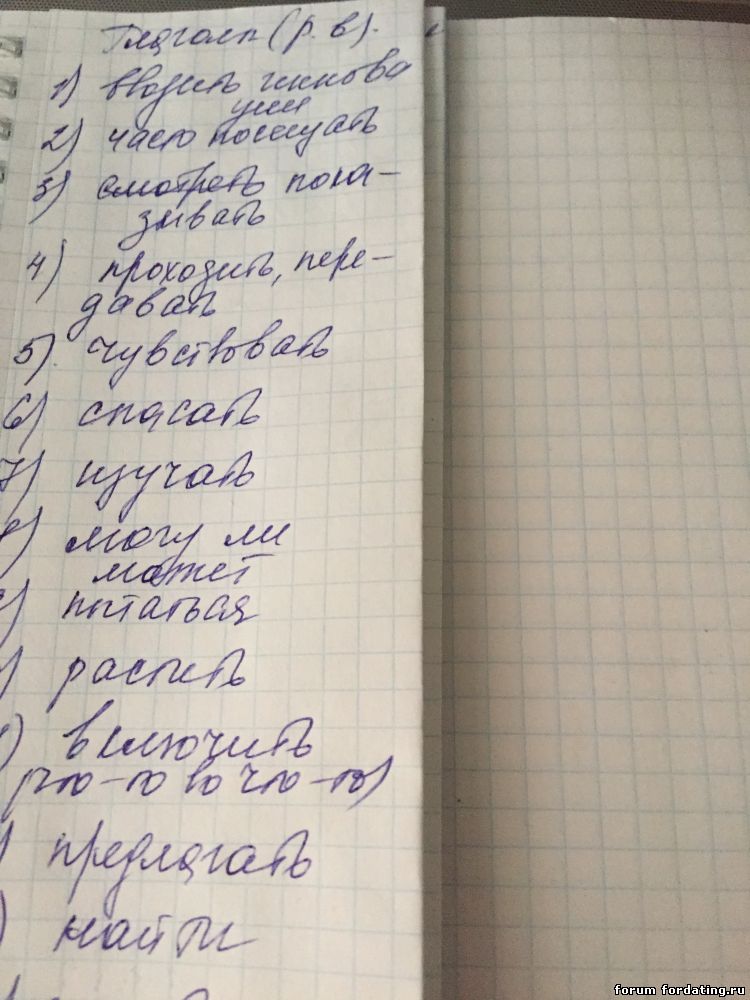 Глаголы (р. в).
1) вводить иннова
ции
2) часто посещать
3) смотреть пока-
зывать
4) проходить, пере-
давать
5). чувствовать
6) спасать
7) изучать
) могу ли
может
) пытаться
) расти
) включить
(что-то во что-то)
) предлагать
) найти
forum fordating.ru